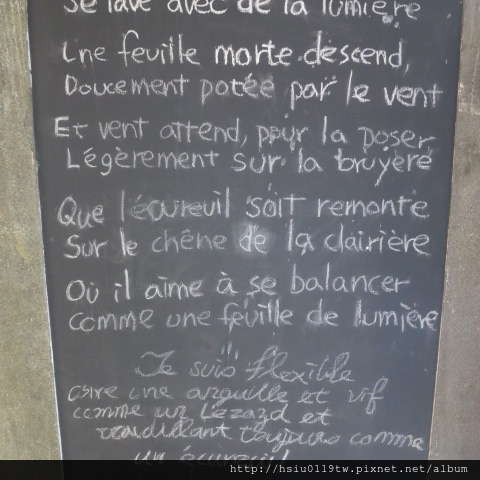 se lave avec de la lumière
Une feuille morte descend,
Doucement potée par le vent
Et vent attend, pour la poser,
Légèrement sur la bruyère
Que l'écureuil soit remonte
Sur le chêne de la clairière
Où il aime à se balancer
comme une feuille de lumière
Je suis flexible
une anguille et vif
comme un Lézazd et
toujours comme
un écureuil
http://hsiu0119tw.pixnet.net/album